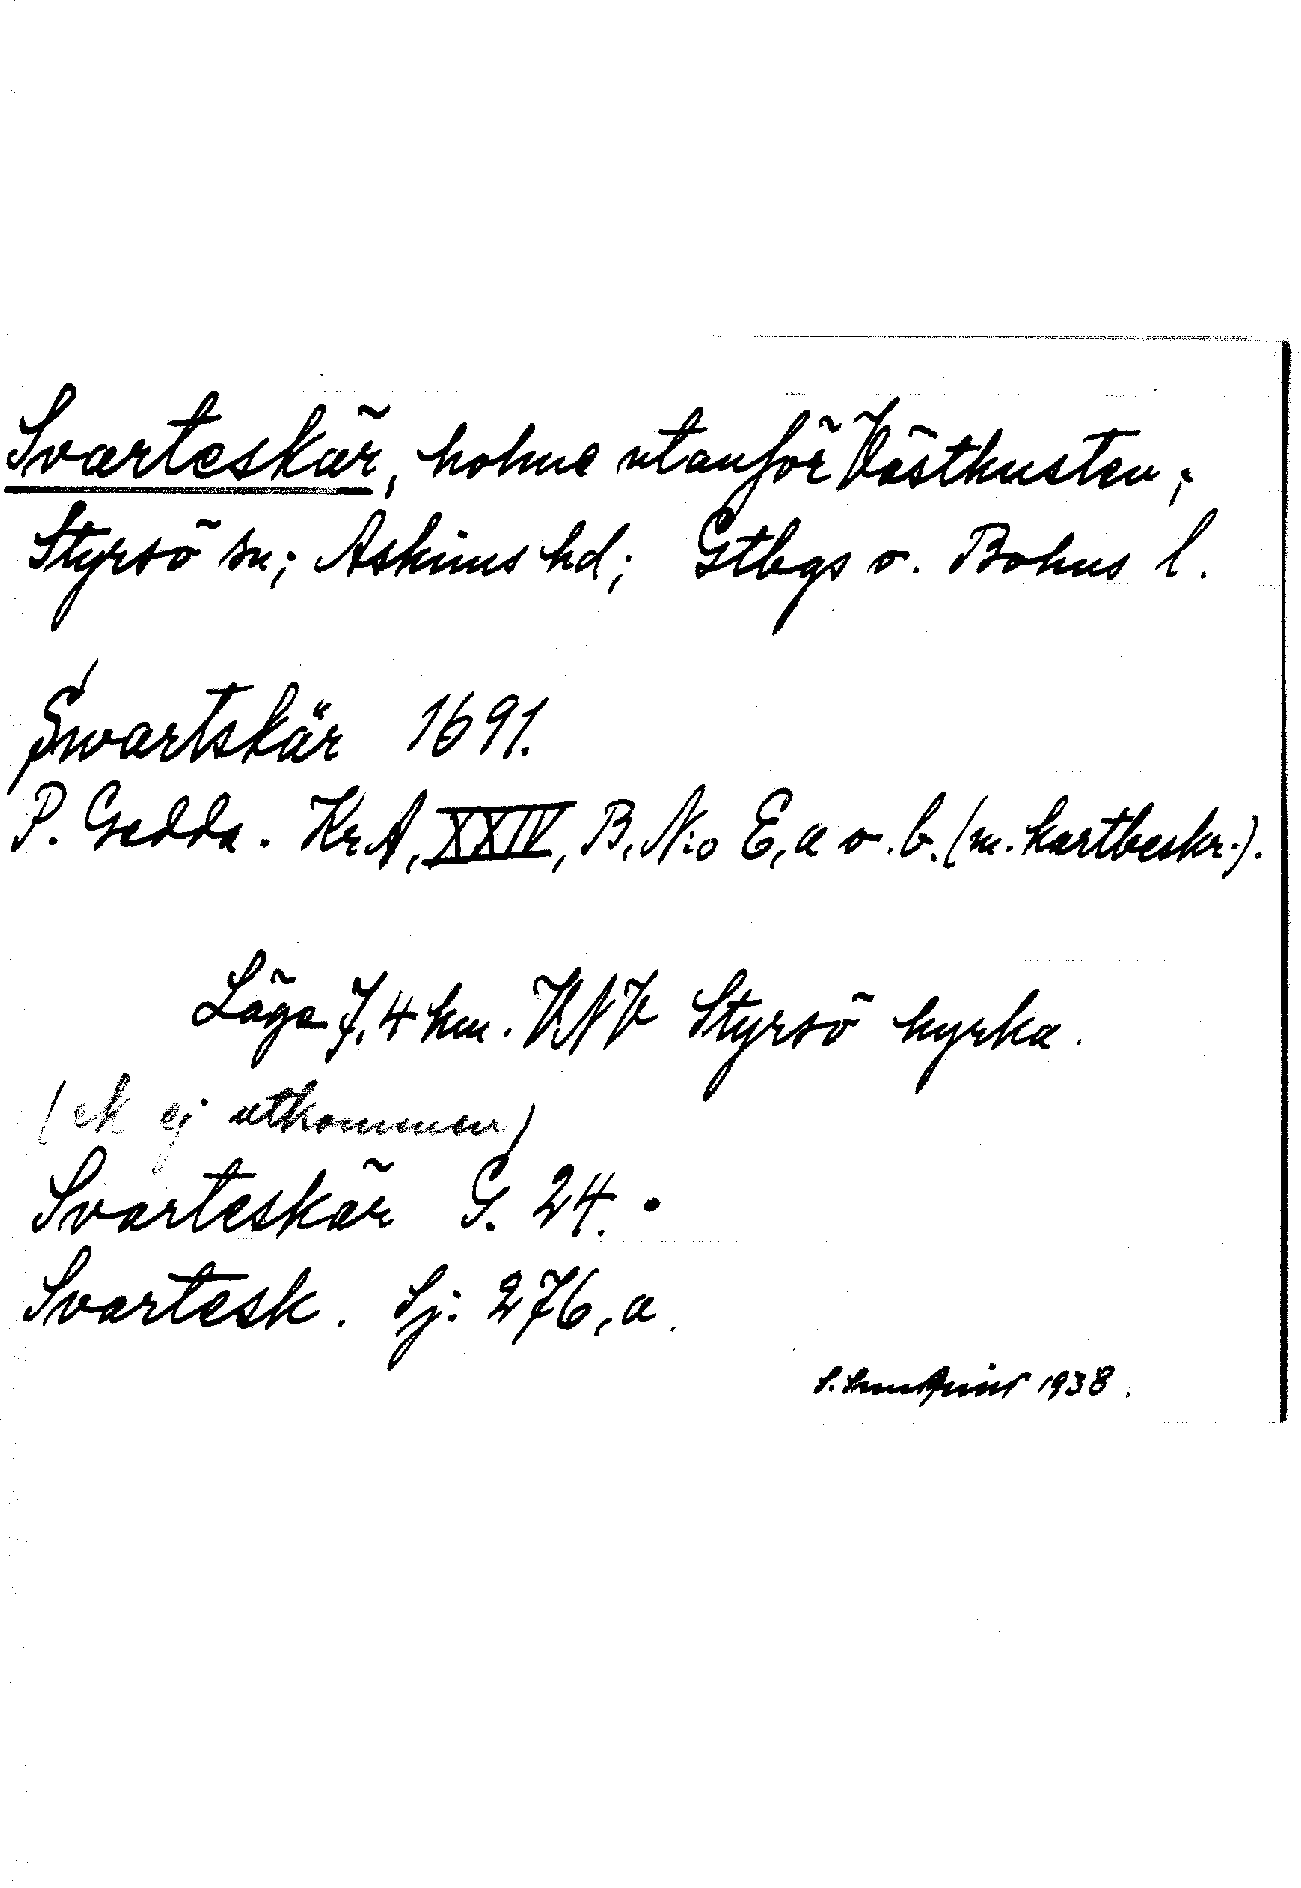 Svarteskär, holme utanför Västkusten,
Styrsö sn; Askims hd; Gtbgs o. Bohus l.
Swartskär 1691.
P. Gedda. Kr.A, XXIV, B, N:o E, a o. b. (m. kartbeskr.).
Läge 7,4 km. VNV Styrsö kyrka.
(ek ej utkommen)
Svarteskär G. 24.
Svartesk. Sj. 276, a.
S. 1938.